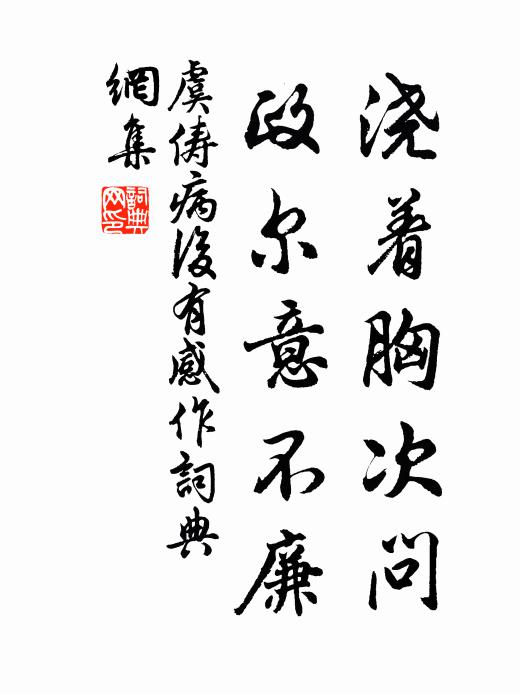 浇着胸次问
政尔意不廉
虞俦病後有感作詞典
網集
詞典
网印